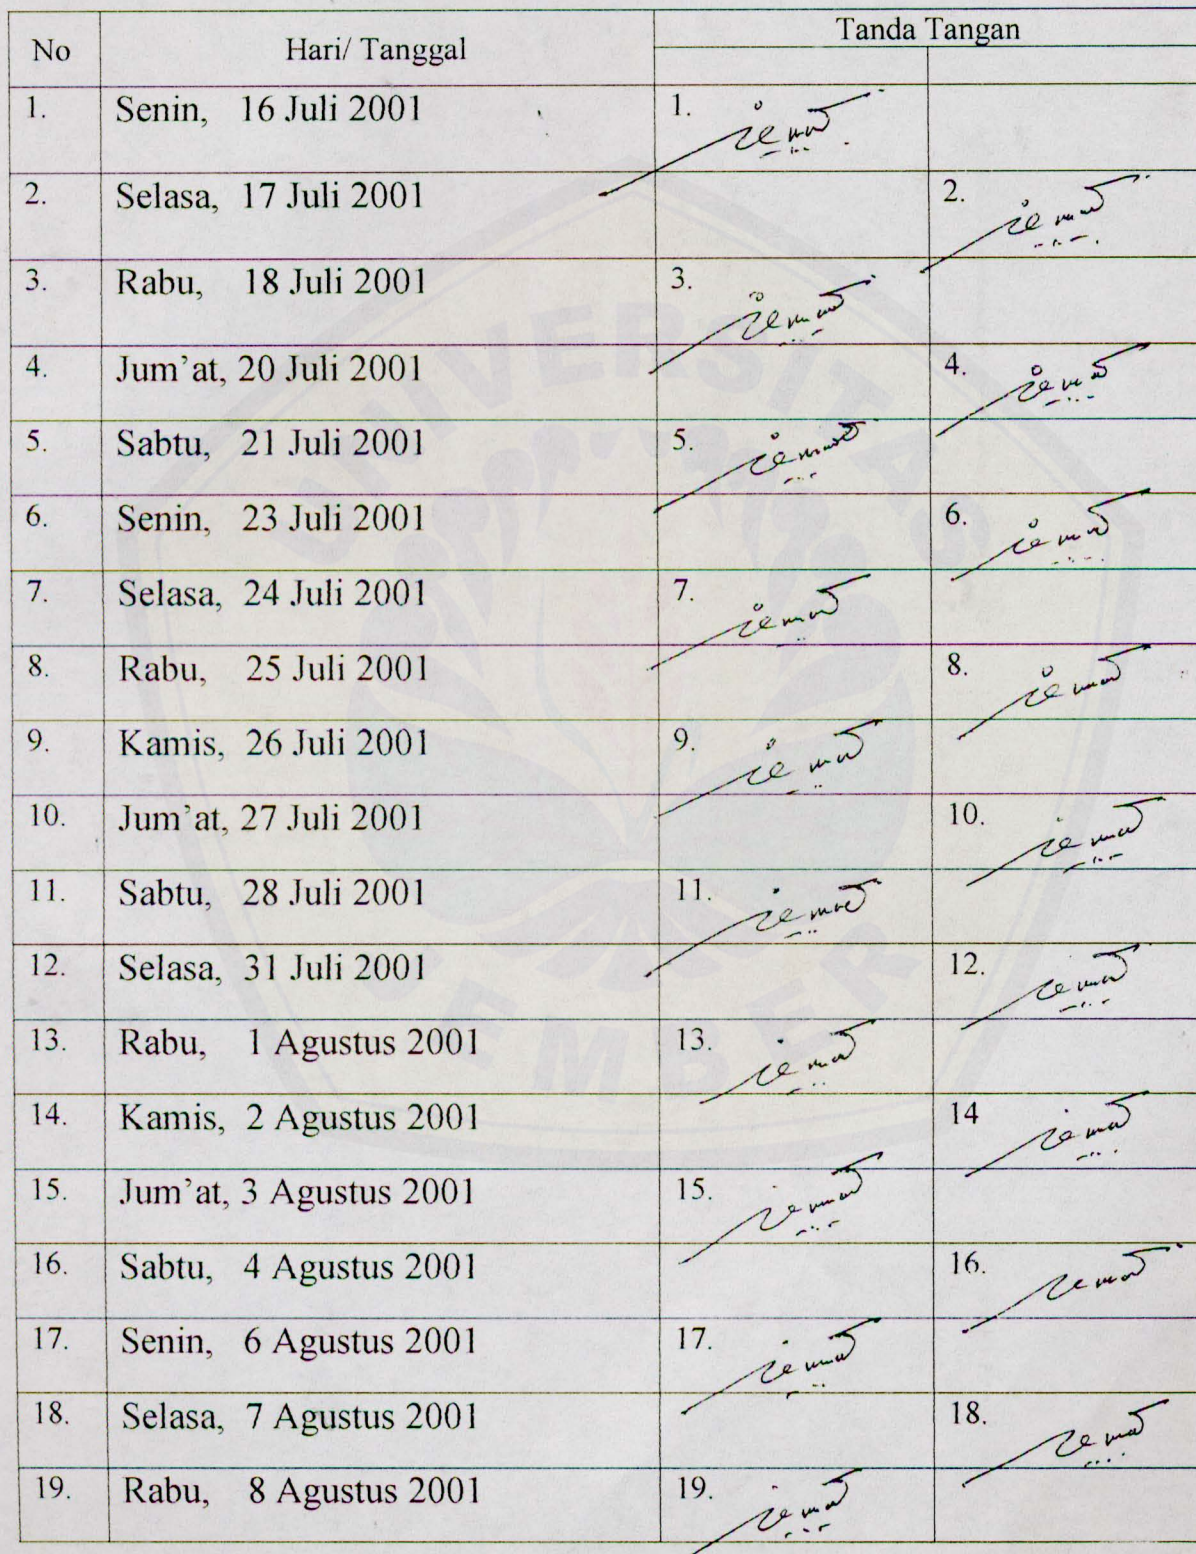 No Hari/ Tanggal Tanda Tangan
1. Senin, 16 Juli 2001 1.
2. Selasa, 17 Juli 2001 2.
3. Rabu, 18 Juli 2001 3.
4. Jum'at, 20 Juli 2001 4.
5. Sabtu, 21 Juli 2001 5.
6. Senin, 23 Juli 2001 6.
7. Selasa, 24 Juli 2001 7.
8. Rabu, 25 Juli 2001 8.
9. Kamis, 26 Juli 2001 9.
10. Jum'at, 27 Juli 2001 10.
11. Sabtu, 28 Juli 2001 11.
12. Selasa, 31 Juli 2001 12.
13. Rabu, 1 Agustus 2001 13.
14. Kamis, 2 Agustus 2001 14
15. Jum'at, 3 Agustus 2001 15.
16. Sabtu, 4 Agustus 2001 16.
17. Senin, 6 Agustus 2001 17.
18. Selasa, 7 Agustus 2001 18.
19. Rabu, 8 Agustus 2001 19.
UNIVERSITAS
JEMBER